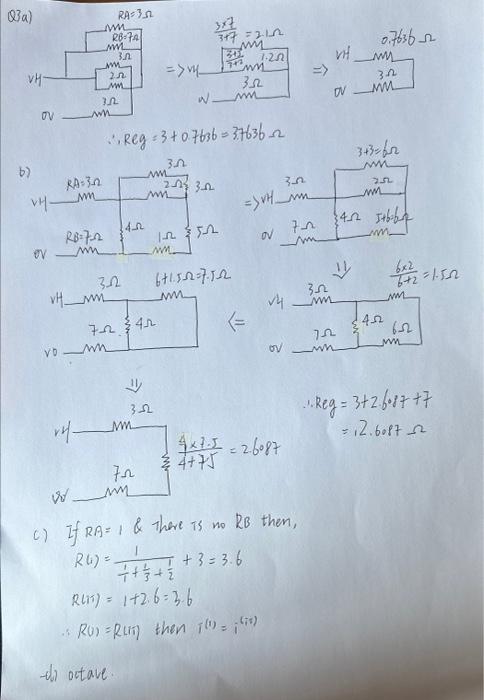 Q3a)
RA=3Ω
RB=7Ω
3Ω
2Ω
3Ω
VH
0V
=> VH
3×7/3+7 = 2.1Ω
3×2/3+2
1.2Ω
3Ω
=>
0.7636 Ω
VH
3Ω
0V
∴ Reg = 3+0.7636 = 3.7636 Ω
b)
3Ω
RA=3Ω
2Ω
3Ω
VH
4Ω
RB=7Ω
1Ω
5Ω
0V
3+3=6Ω
=> VH
3Ω
2Ω
7Ω
4Ω
0V
3Ω
6+1.5Ω=7.5Ω
VH
7Ω
4Ω
V0
<=
⇓
6×2/6+2 = 1.5Ω
VH
3Ω
4Ω
7Ω
6Ω
0V
⇓
3Ω
VH
4×7.5/4+7.5 = 2.6087
7Ω
∴ Reg = 3+2.6087+7
= 12.6087 Ω
c) If RA=1 & There is no RB then,
R(i) = 1/(1/1+1/3+1/2) + 3 = 3.6
R(ii) = 1+2.6=3.6
∴ R(i) = R(ii) then i(i) = i(ii)
d) octave.